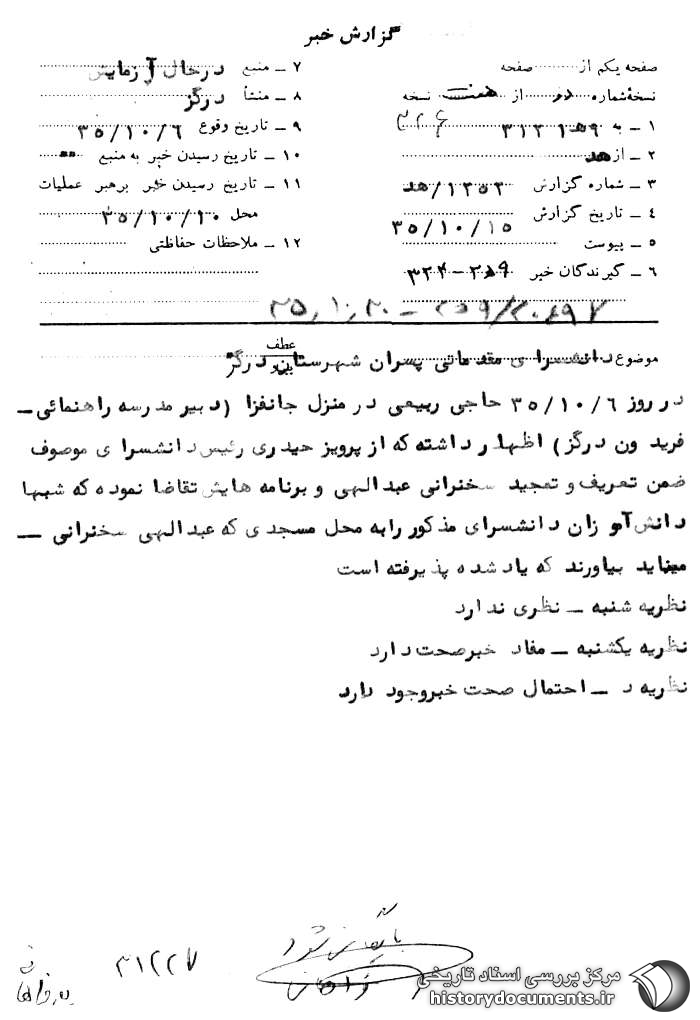 گزارش خبر
صفحه یکم از صفحه
نسخهٔ شماره دو از هفت نسخه
۱ – به ۳۱۲
۲ – از هد
۳ – شماره گزارش ۱۳۵۳/هد
۴ – تاریخ گزارش ۳۵/۱۰/۱۵
۵ – پیوست
۶ – گیرندگان خبر ۳۲۴-
۷ – منبع درحال آزمایش
۸ – منشأ درگز
۹ – تاریخ وقوع ۳۵/۱۰/۶
۱۰ – تاریخ رسیدن خبر به منبع ""
۱۱ – تاریخ رسیدن خبر برهبر عملیات
محل ۳۵/۱۰/۱۰
۱۲ – ملاحظات حفاظتی
موضوع دانشسرای مقدماتی پسران شهرستان درگز
عطف
در روز ۳۵/۱۰/۶ حاجی ربیعی در منزل جانفزا (دبیر مدرسه راهنمائی –
فریدون درگز) اظهار داشته که از پرویز حیدری رئیس دانشسرای موصوف
ضمن تعریف و تمجید سخنرانی عبدالهی و برنامه هایش تقاضا نموده که شبها
دانش آموزان دانشسرای مذکور رابه محل مسجدی که عبدالهی سخنرانی –
مینماید بیاورند که یاد شده پذیرفته است
نظریه شنبه – نظری ندارد
نظریه یکشنبه – مفاد خبرصحت دارد
نظریه د – احتمال صحت خبروجود دارد
بایگانی شود
۳۱۲۲۷
مرکز بررسی اسناد تاریخی
historydocuments.ir